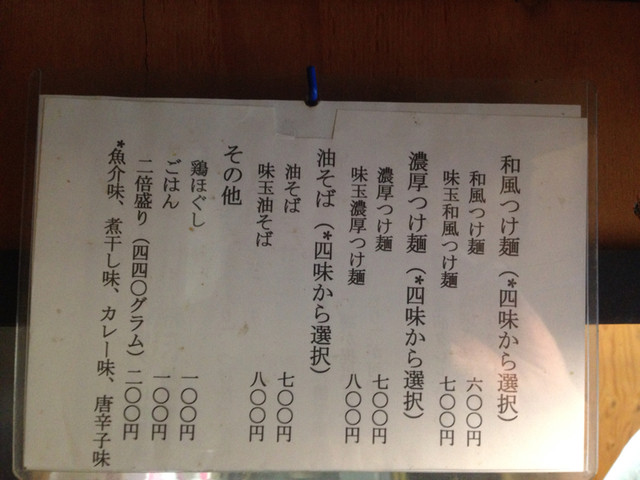 和風つけ麺(*四味から選択)
和風つけ麺 六〇〇円
味玉和風つけ麺 七〇〇円
濃厚つけ麺(*四味から選択)
濃厚つけ麺 七〇〇円
味玉濃厚つけ麺 八〇〇円
油そば(*四味から選択)
油そば 七〇〇円
味玉油そば 八〇〇円
その他
鶏ほぐし 一〇〇円
ごはん 一〇〇円
二倍盛り(四四〇グラム) 二〇〇円
*魚介味、煮干し味、カレー味、唐辛子味